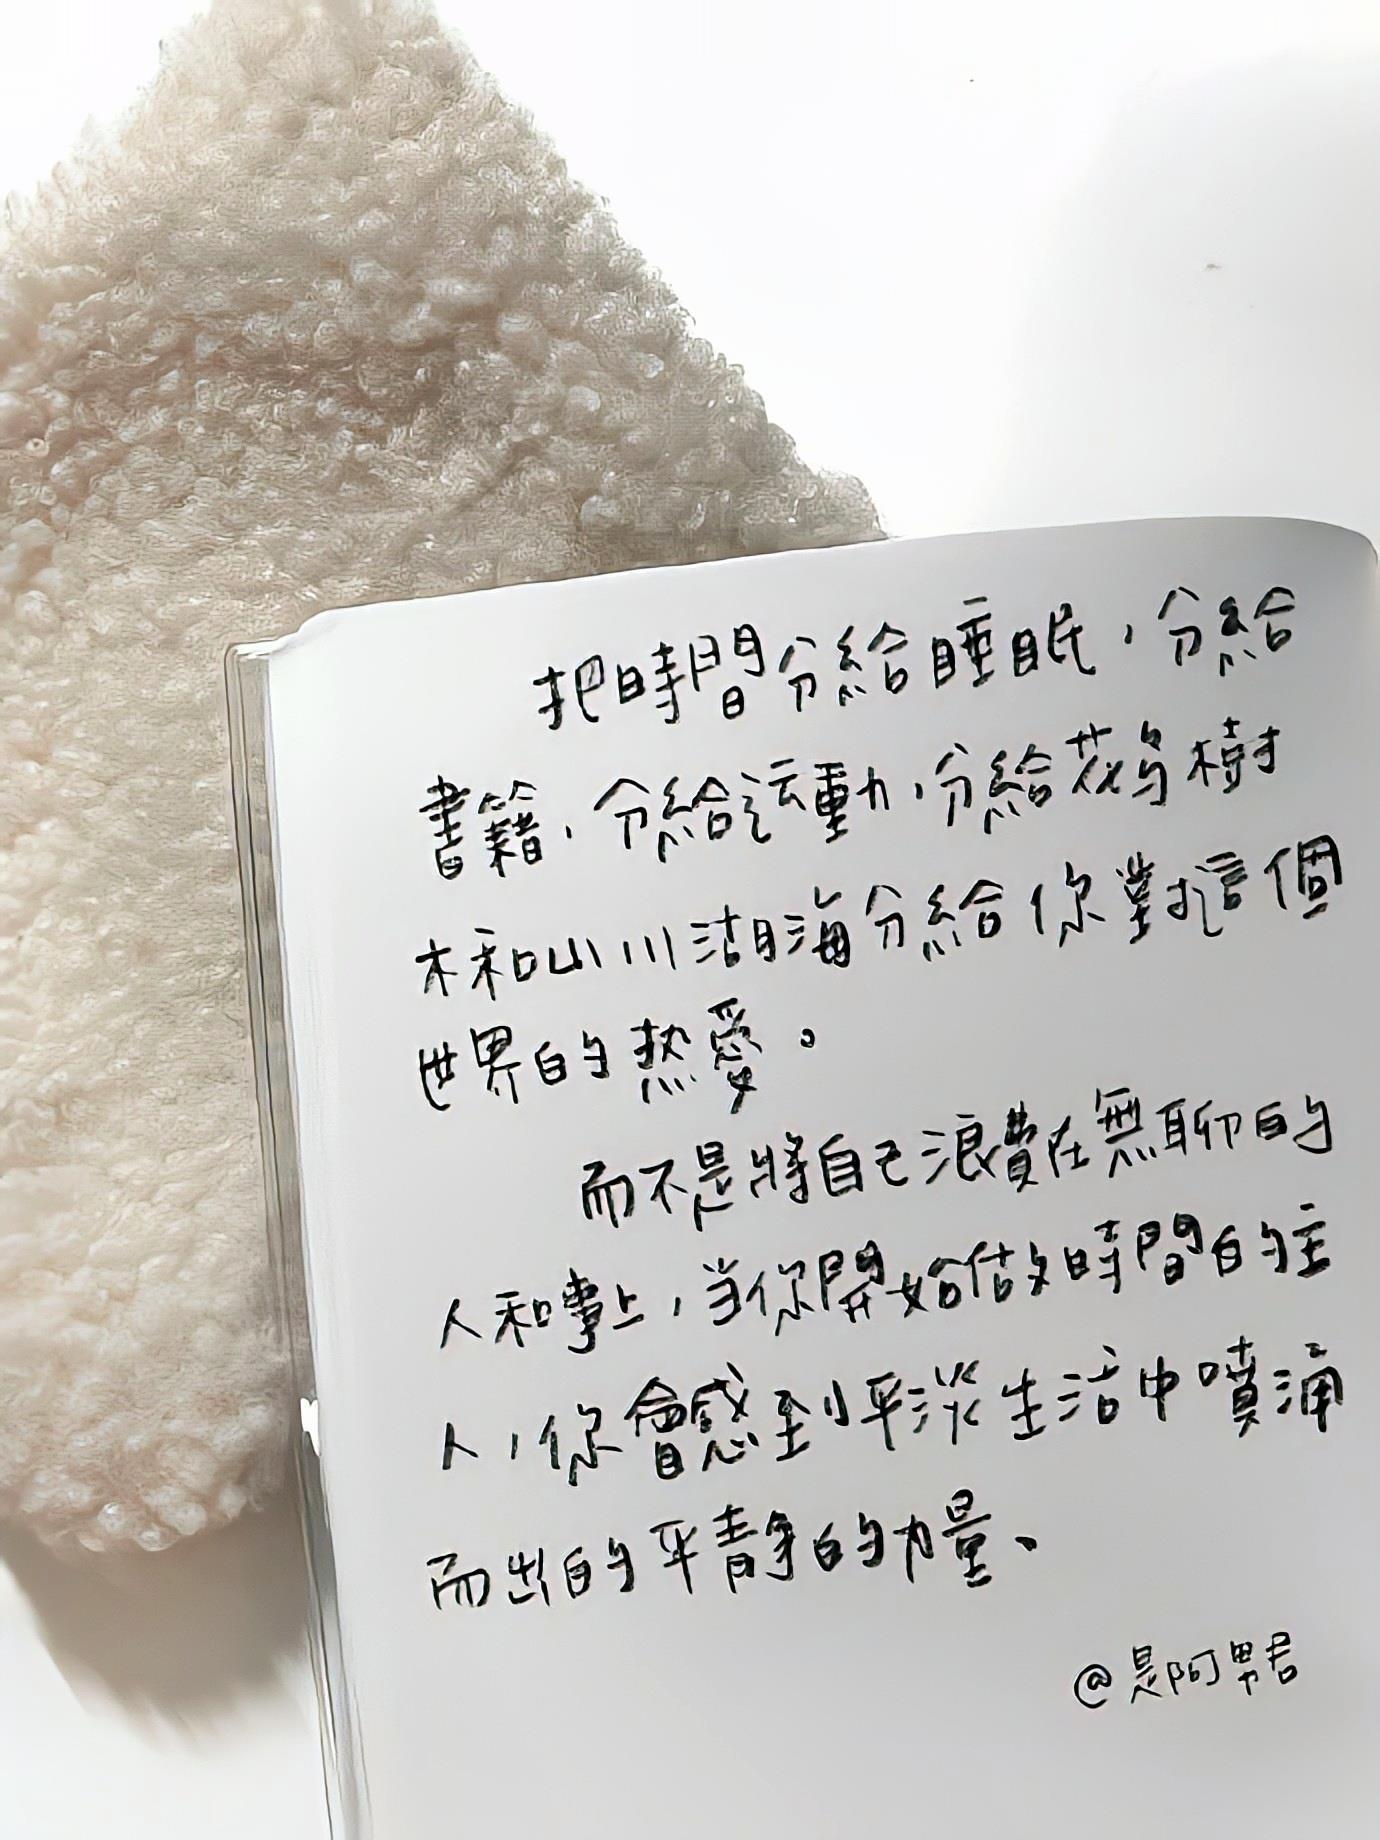 把時間分給睡眠，分給
書籍，分給运動，分給花鸟樹
木和山川湖海分給你對這個
世界的热愛。
而不是將自己浪費在無聊的
人和事上，当你開始做時間的主
人，你會感到平淡生活中噴涌
而出的平靜的力量。
@是阿男君